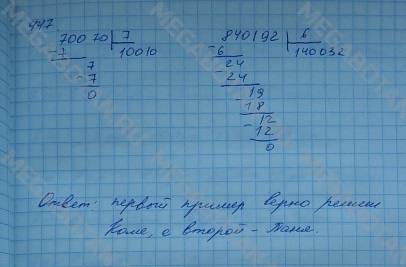 447
70070 | 7
- 7 10010
7
- 7
0
840192 | 6
- 6 140032
24
- 24
19
- 18
12
- 12
0
Ответ: первый пример верно решили
Коле, а второй – Таня.
MEGABOTAN